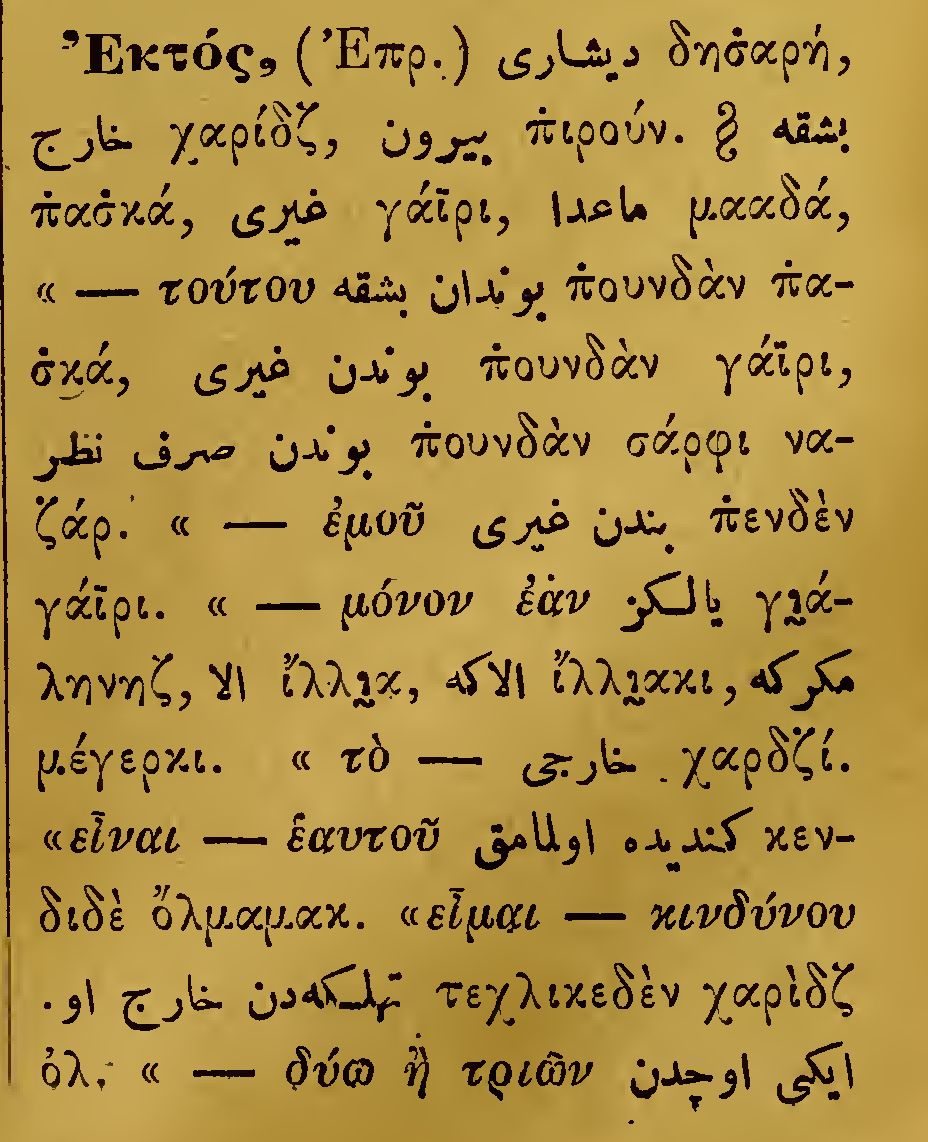 Ἐκτός, (Ἐπρ.) دیشاری δησ̇αρή,
خارج χαρίδζ, بیرون π̇ιρούν. § بشقه
π̇ασ̇κά, غیری γάϊρι, ماعدا μααδά,
« — τούτου بوندان بشقه π̇ουνδὰν π̇α-
σ̇κά, بوندن غیری π̇ουνδὰν γάϊρι,
بوندن صرف نظر π̇ουνδὰν σάρφι να-
ζάρ. « — ἐμοῦ بندن غیری π̇ενδὲν
γάϊρι. « — μόνον ἐὰν یالكز γιά-
ληνηζ, الا ἴλλια, الاكه ἴλλιακι, مكركه
μέγερκι. « τὸ — خارجی χαρδζί.
«εἶναι — ἑαυτοῦ كندیده اولمامق κεν-
διδὲ ὄλμαμακ. «εἶμαι — κινδύνου
تهلكه‌دن خارج او. τεχλικεδὲν χαρὶδζ
ὀλ. « — δύω ἢ τριῶν ایكی اوچدن